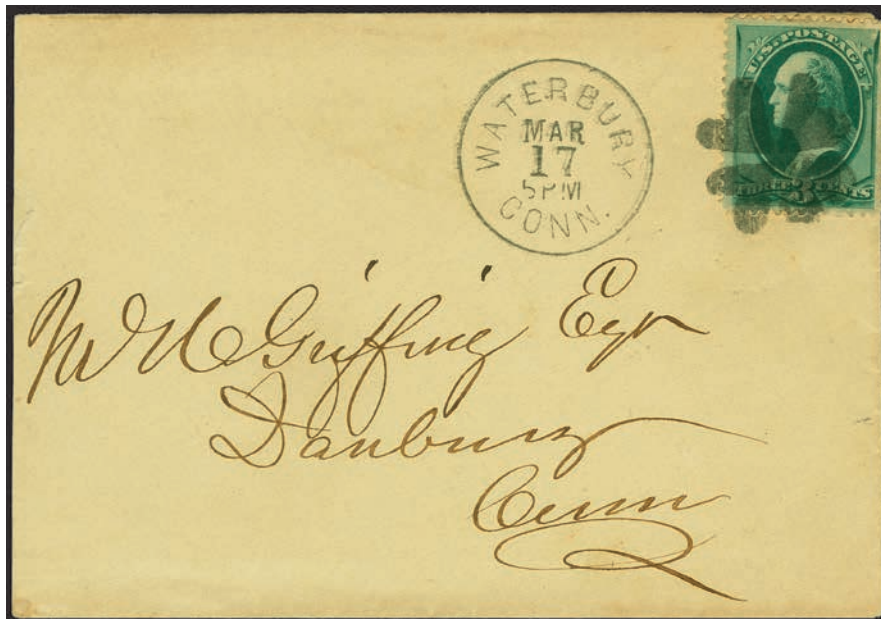 WATERBURY
MAR
17
5 PM
CONN.
U.S. POSTAGE
THREE 3 CENTS
W H Griffing Esqr
Danbury
Conn